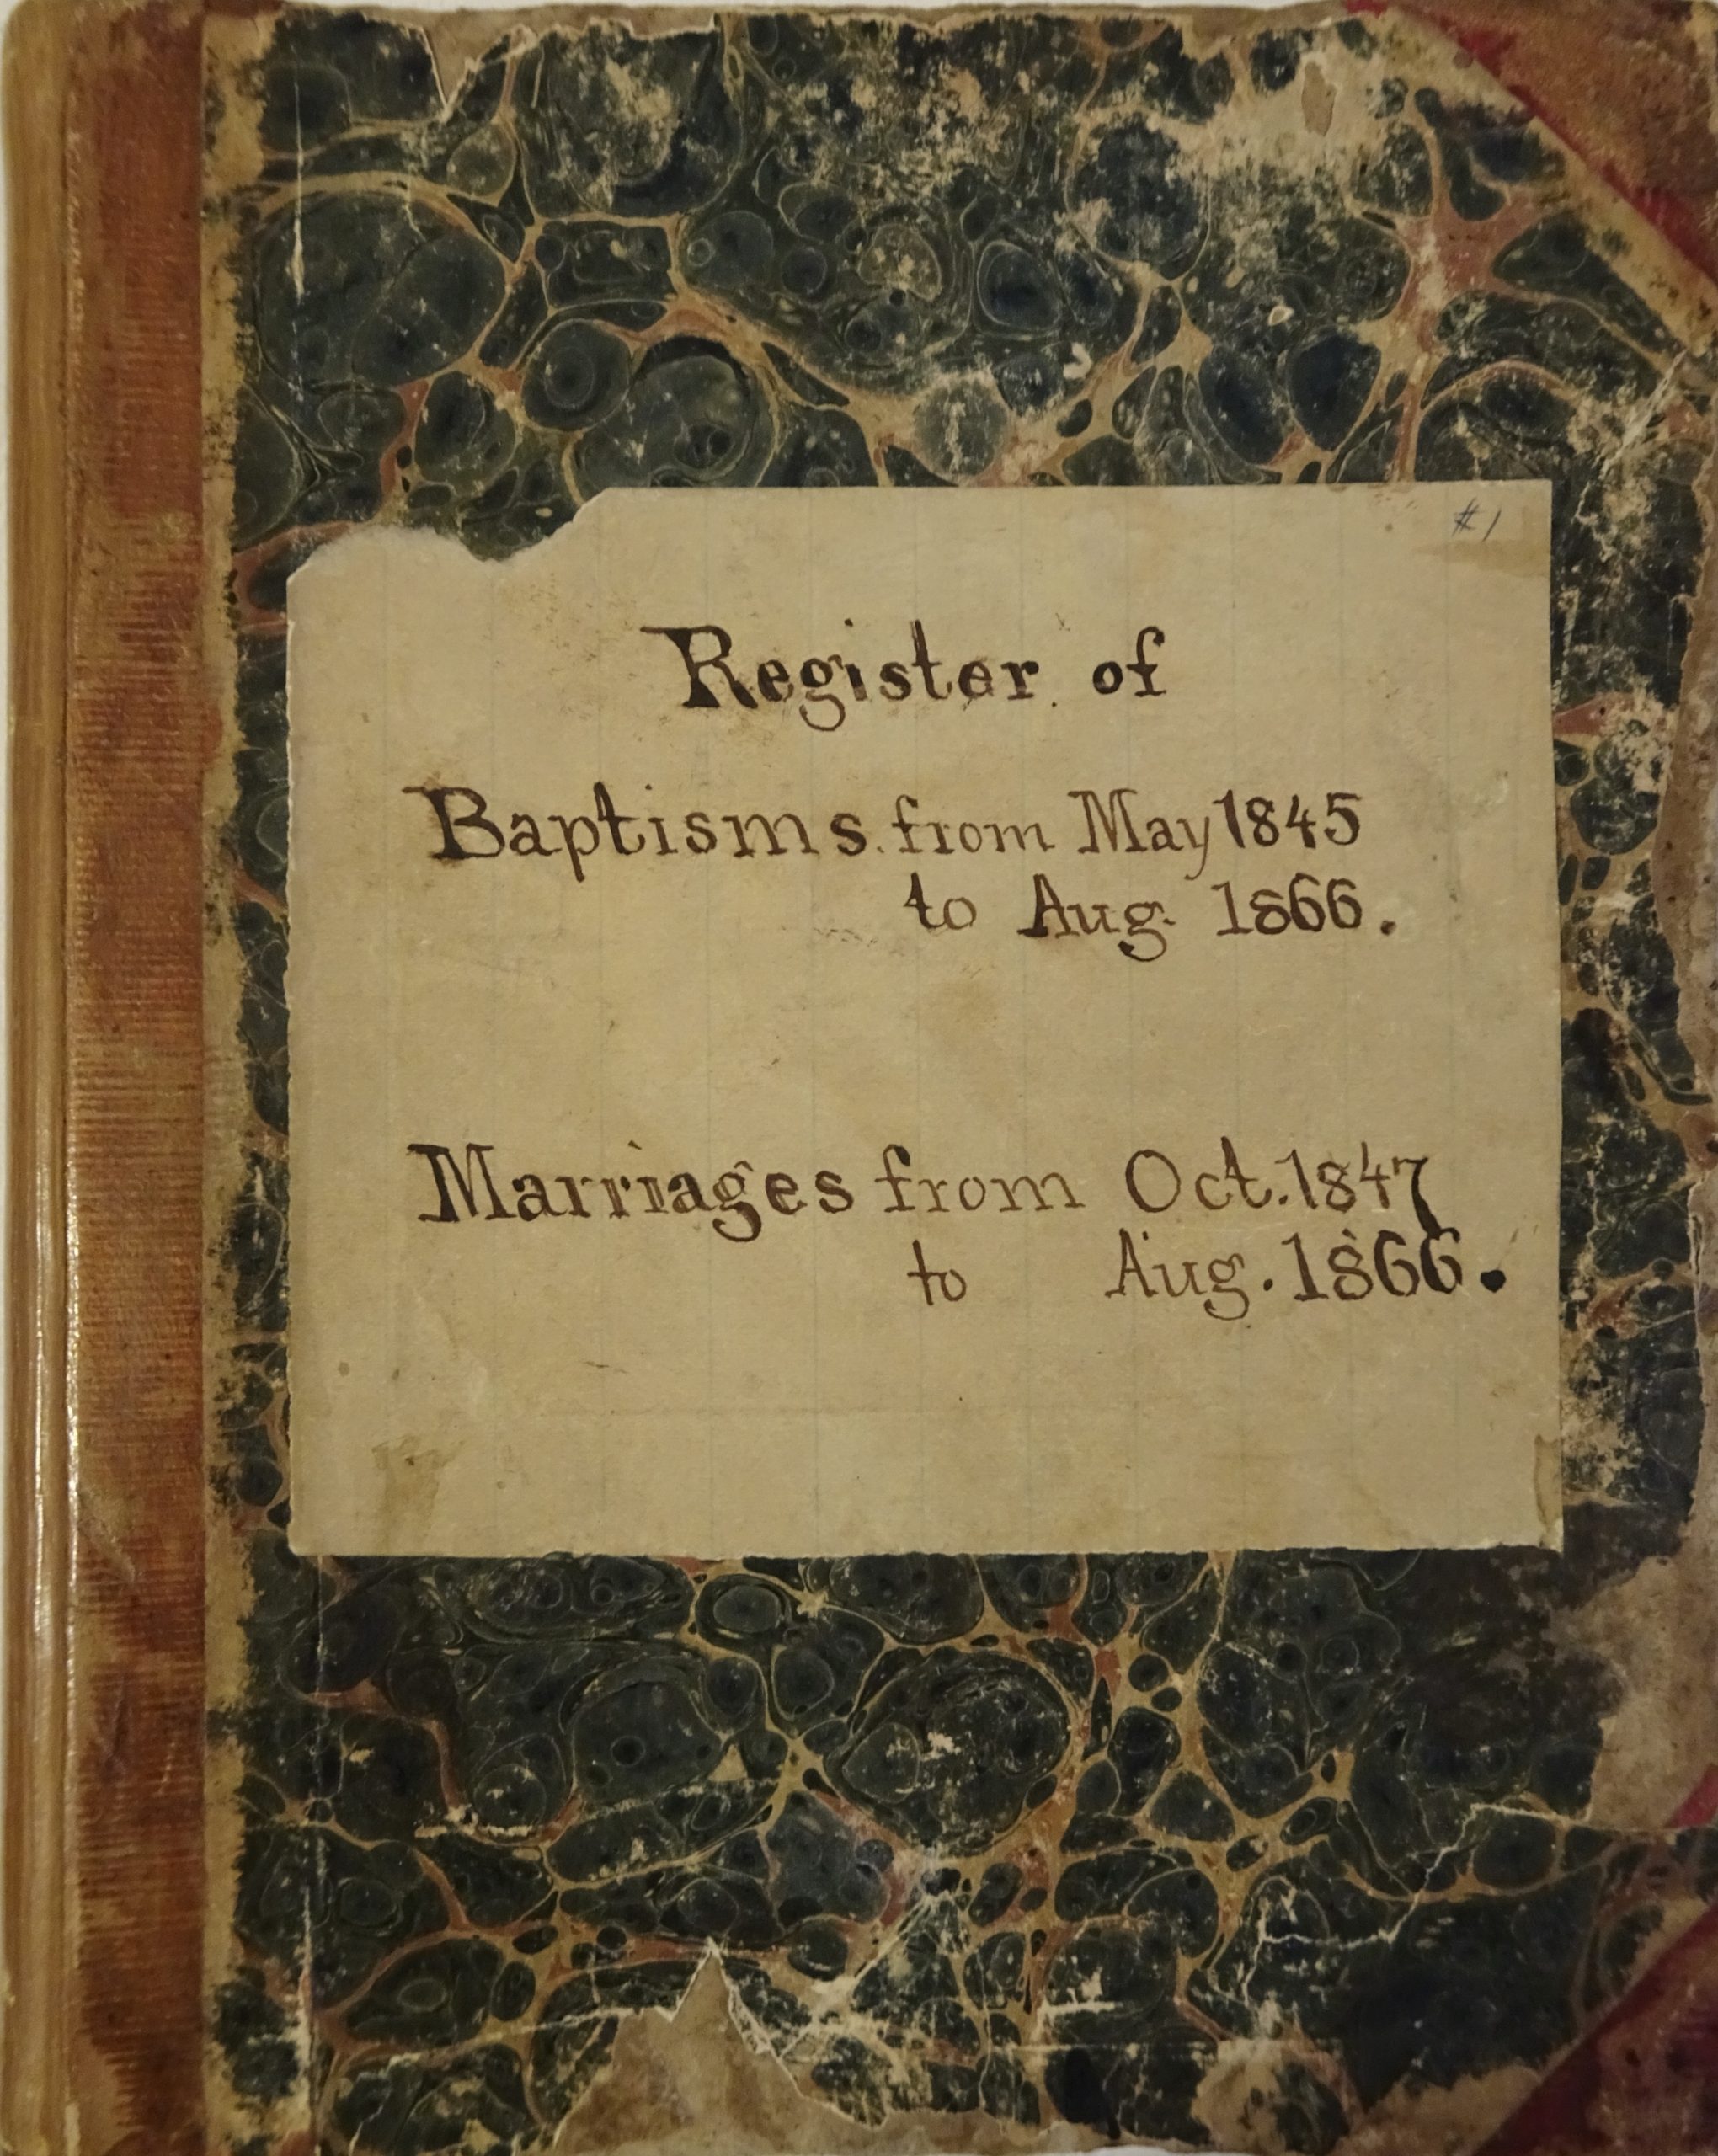 #1
Register of
Baptisms from May 1845
to Aug. 1866.
Marriages from Oct. 1847
to Aug. 1866.